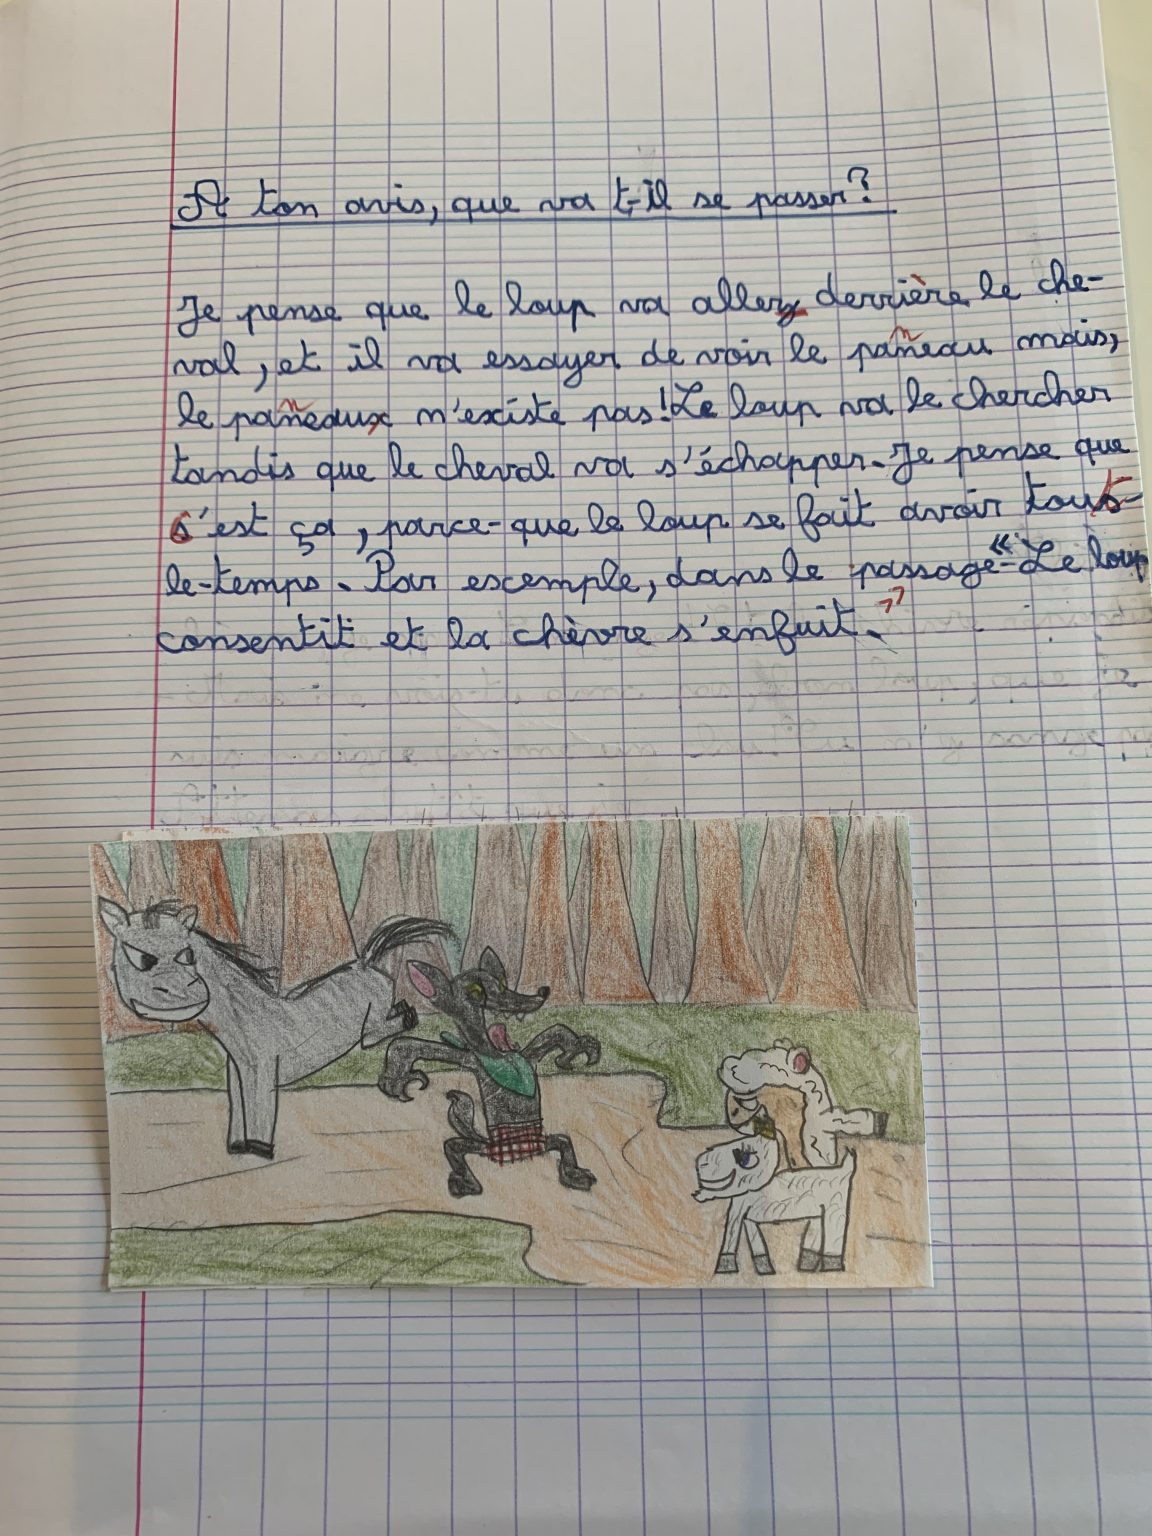 A ton avis, que va t-il se passer?
Je pense que le loup va aller derrière le che-
val, et il va essayer de voir le panneau mais,
le panneaux n'existe pas! Le loup va le chercher
tandis que le cheval va s'échapper. Je pense que
c'est ça, parce-que le loup se fait avoir tout-
le-temps. Par escemple, dans le passage «Le loup
consentit et la chèvre s'enfuit.»